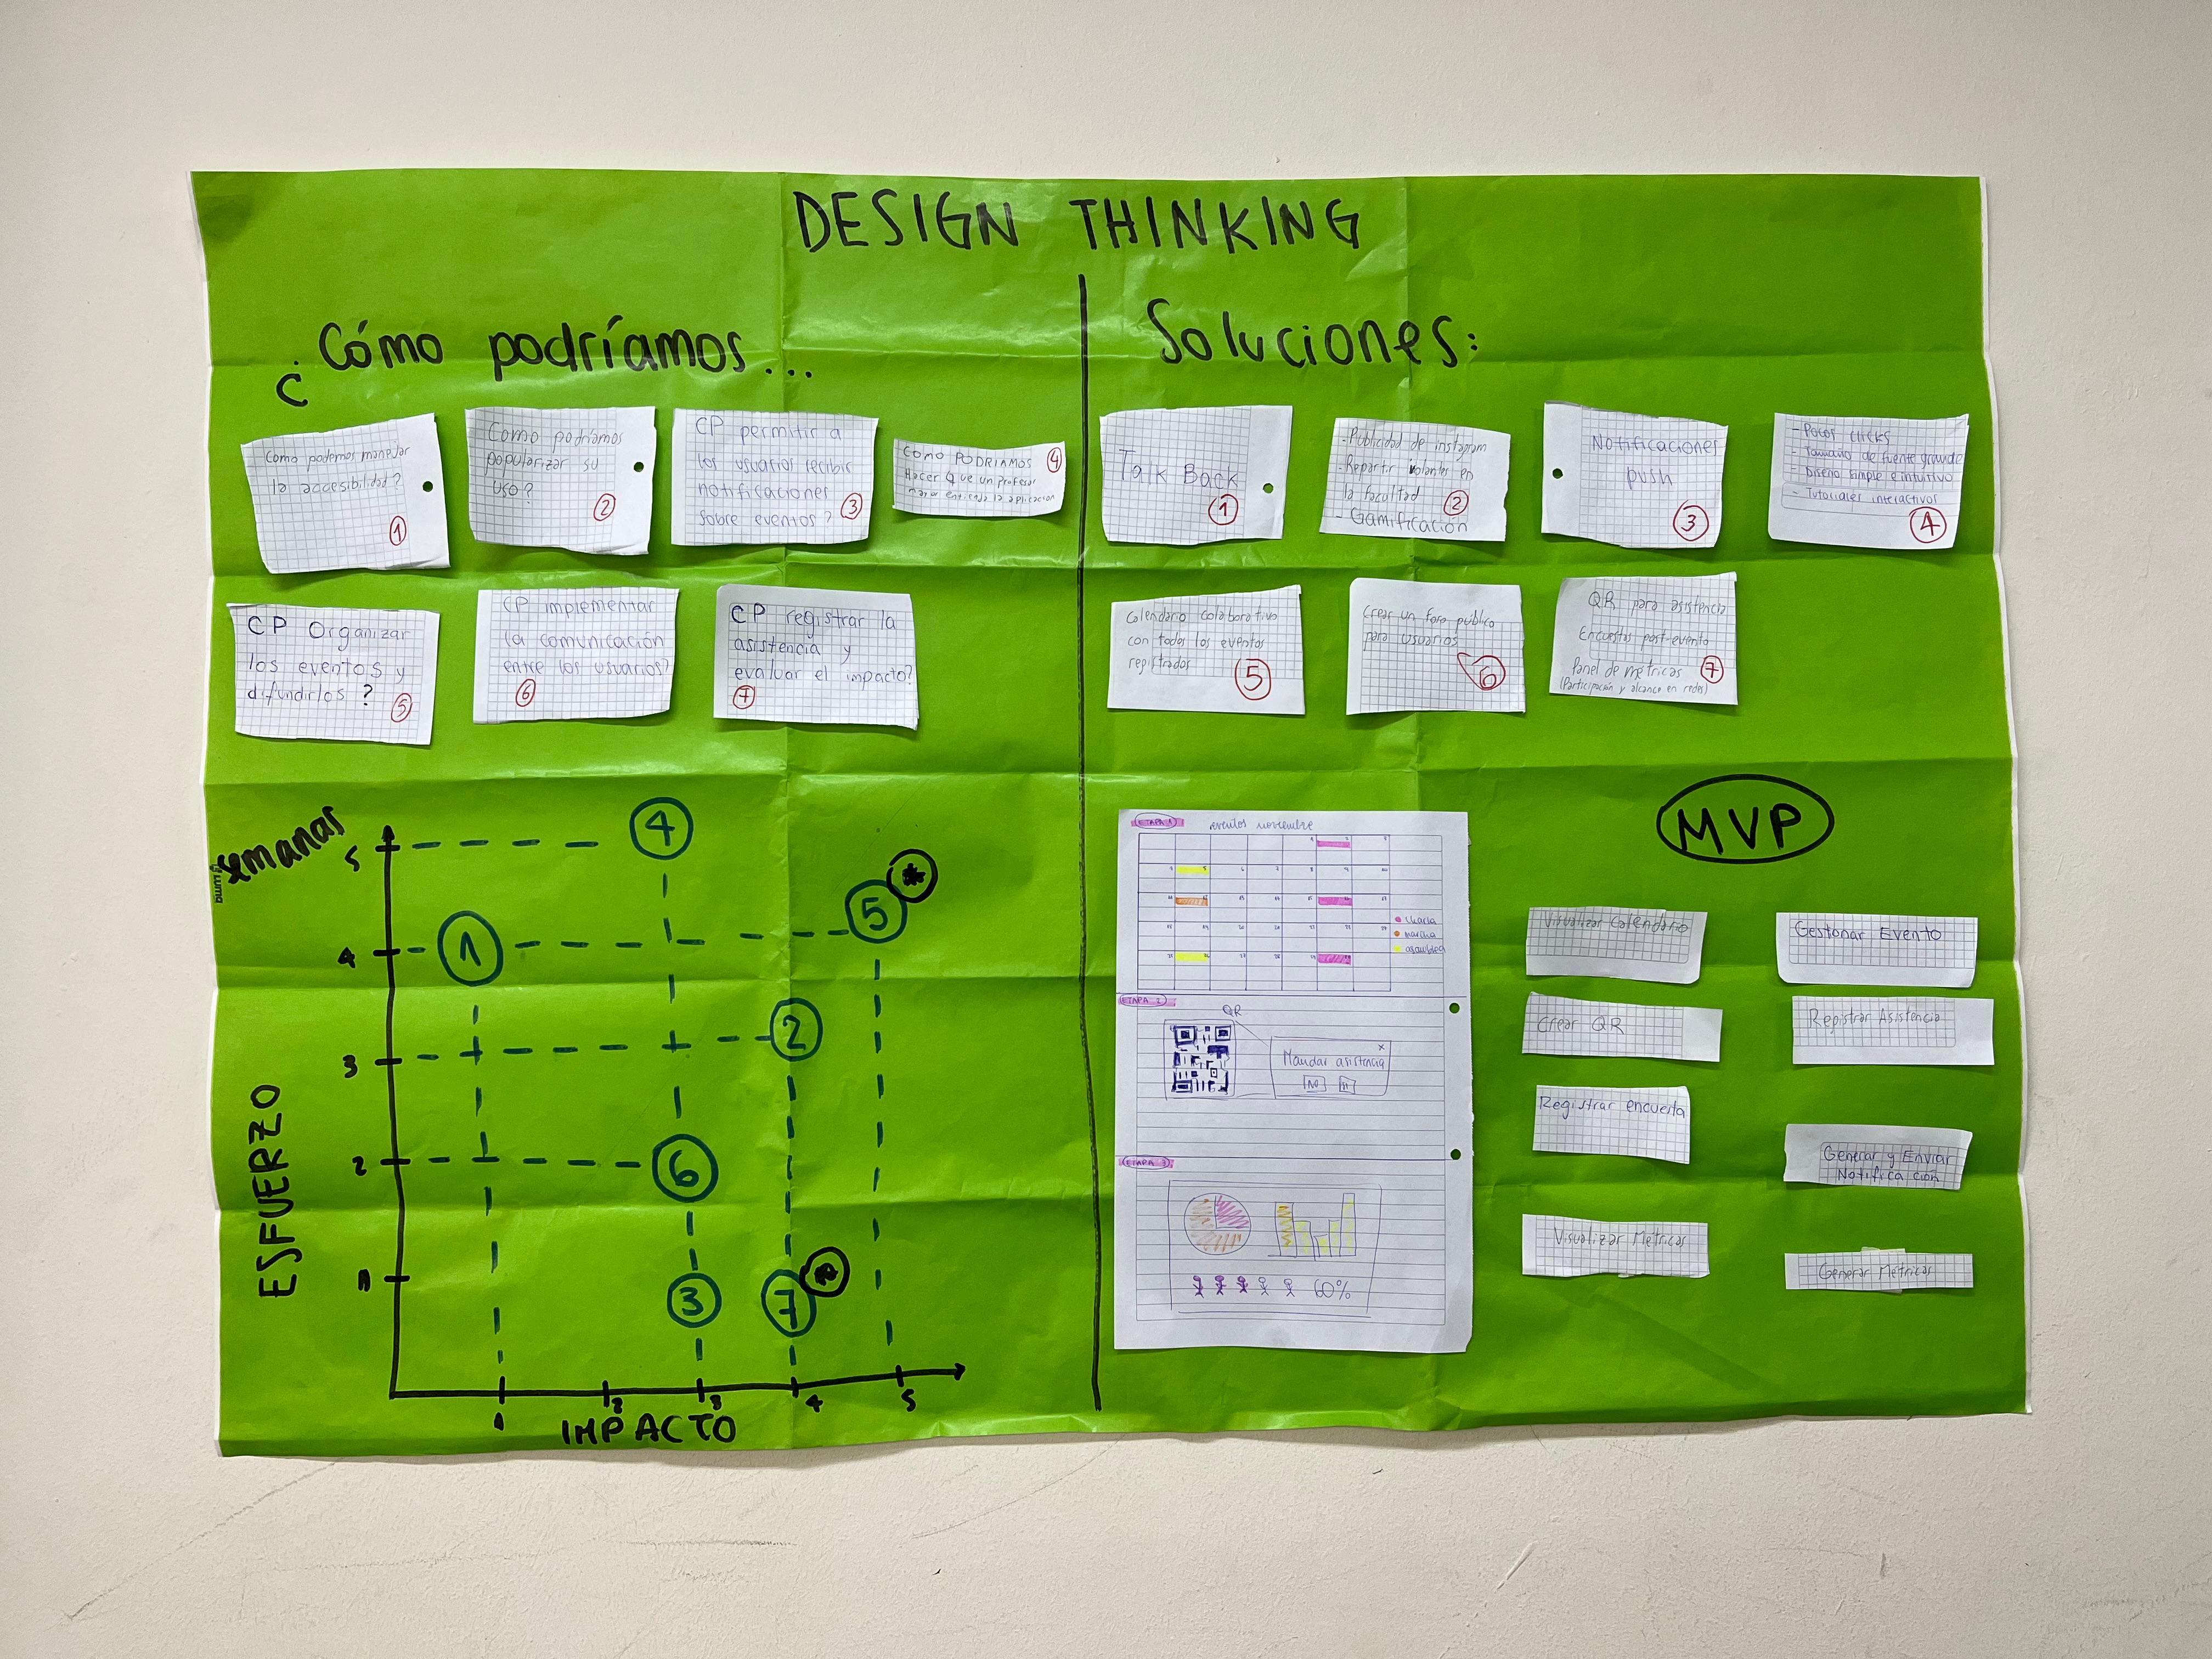 DESIGN THINKING
¿Cómo podríamos...
Como podemos manejar
la accesibilidad?
1
Como podríamos
popularizar su
uso?
2
CP permitir a
los usuarios recibir
notificaciones
sobre eventos?
3
COMO PODRIAMOS
4
Hacer que un profesor
mayor entienda la aplicacion
CP Organizar
los eventos y
difundirlos?
5
CP implementar
la comunicación
entre los usuarios?
6
CP registrar la
asistencia y
evaluar el impacto?
7
Soluciones:
Talk Back
1
- Publicidad de instagram
- Repartir volantes en
la facultad
2
- Gamificación
Notificaciones
push
3
- Pocos clicks
- Tamaño de fuente grande
- Diseño simple e intuitivo
- Tutoriales interactivos
4
Calendario colaborativo
con todos los eventos
registrados
5
Crear un foro público
para usuarios
6
QR para asistencia
Encuestas post-evento
Panel de métricas
7
(Participación y alcance en redes)
semanas
5
4
3
2
1
ESFUERZO
4
5
*
1
2
6
3
7
*
1
2
3
4
5
IMPACTO
ETAPA 1
eventos noviembre
charla
marcha
asamblea
ETAPA 2
QR
x
Mandar asistencia
NO
ETAPA 3
60%
MVP
Visualizar Calendario
Gestonar Evento
Crear QR
Registrar Asistencia
Registrar encuesta
Generar y Enviar
Notifica ción
Visualizar Métricas
Generar Métricas